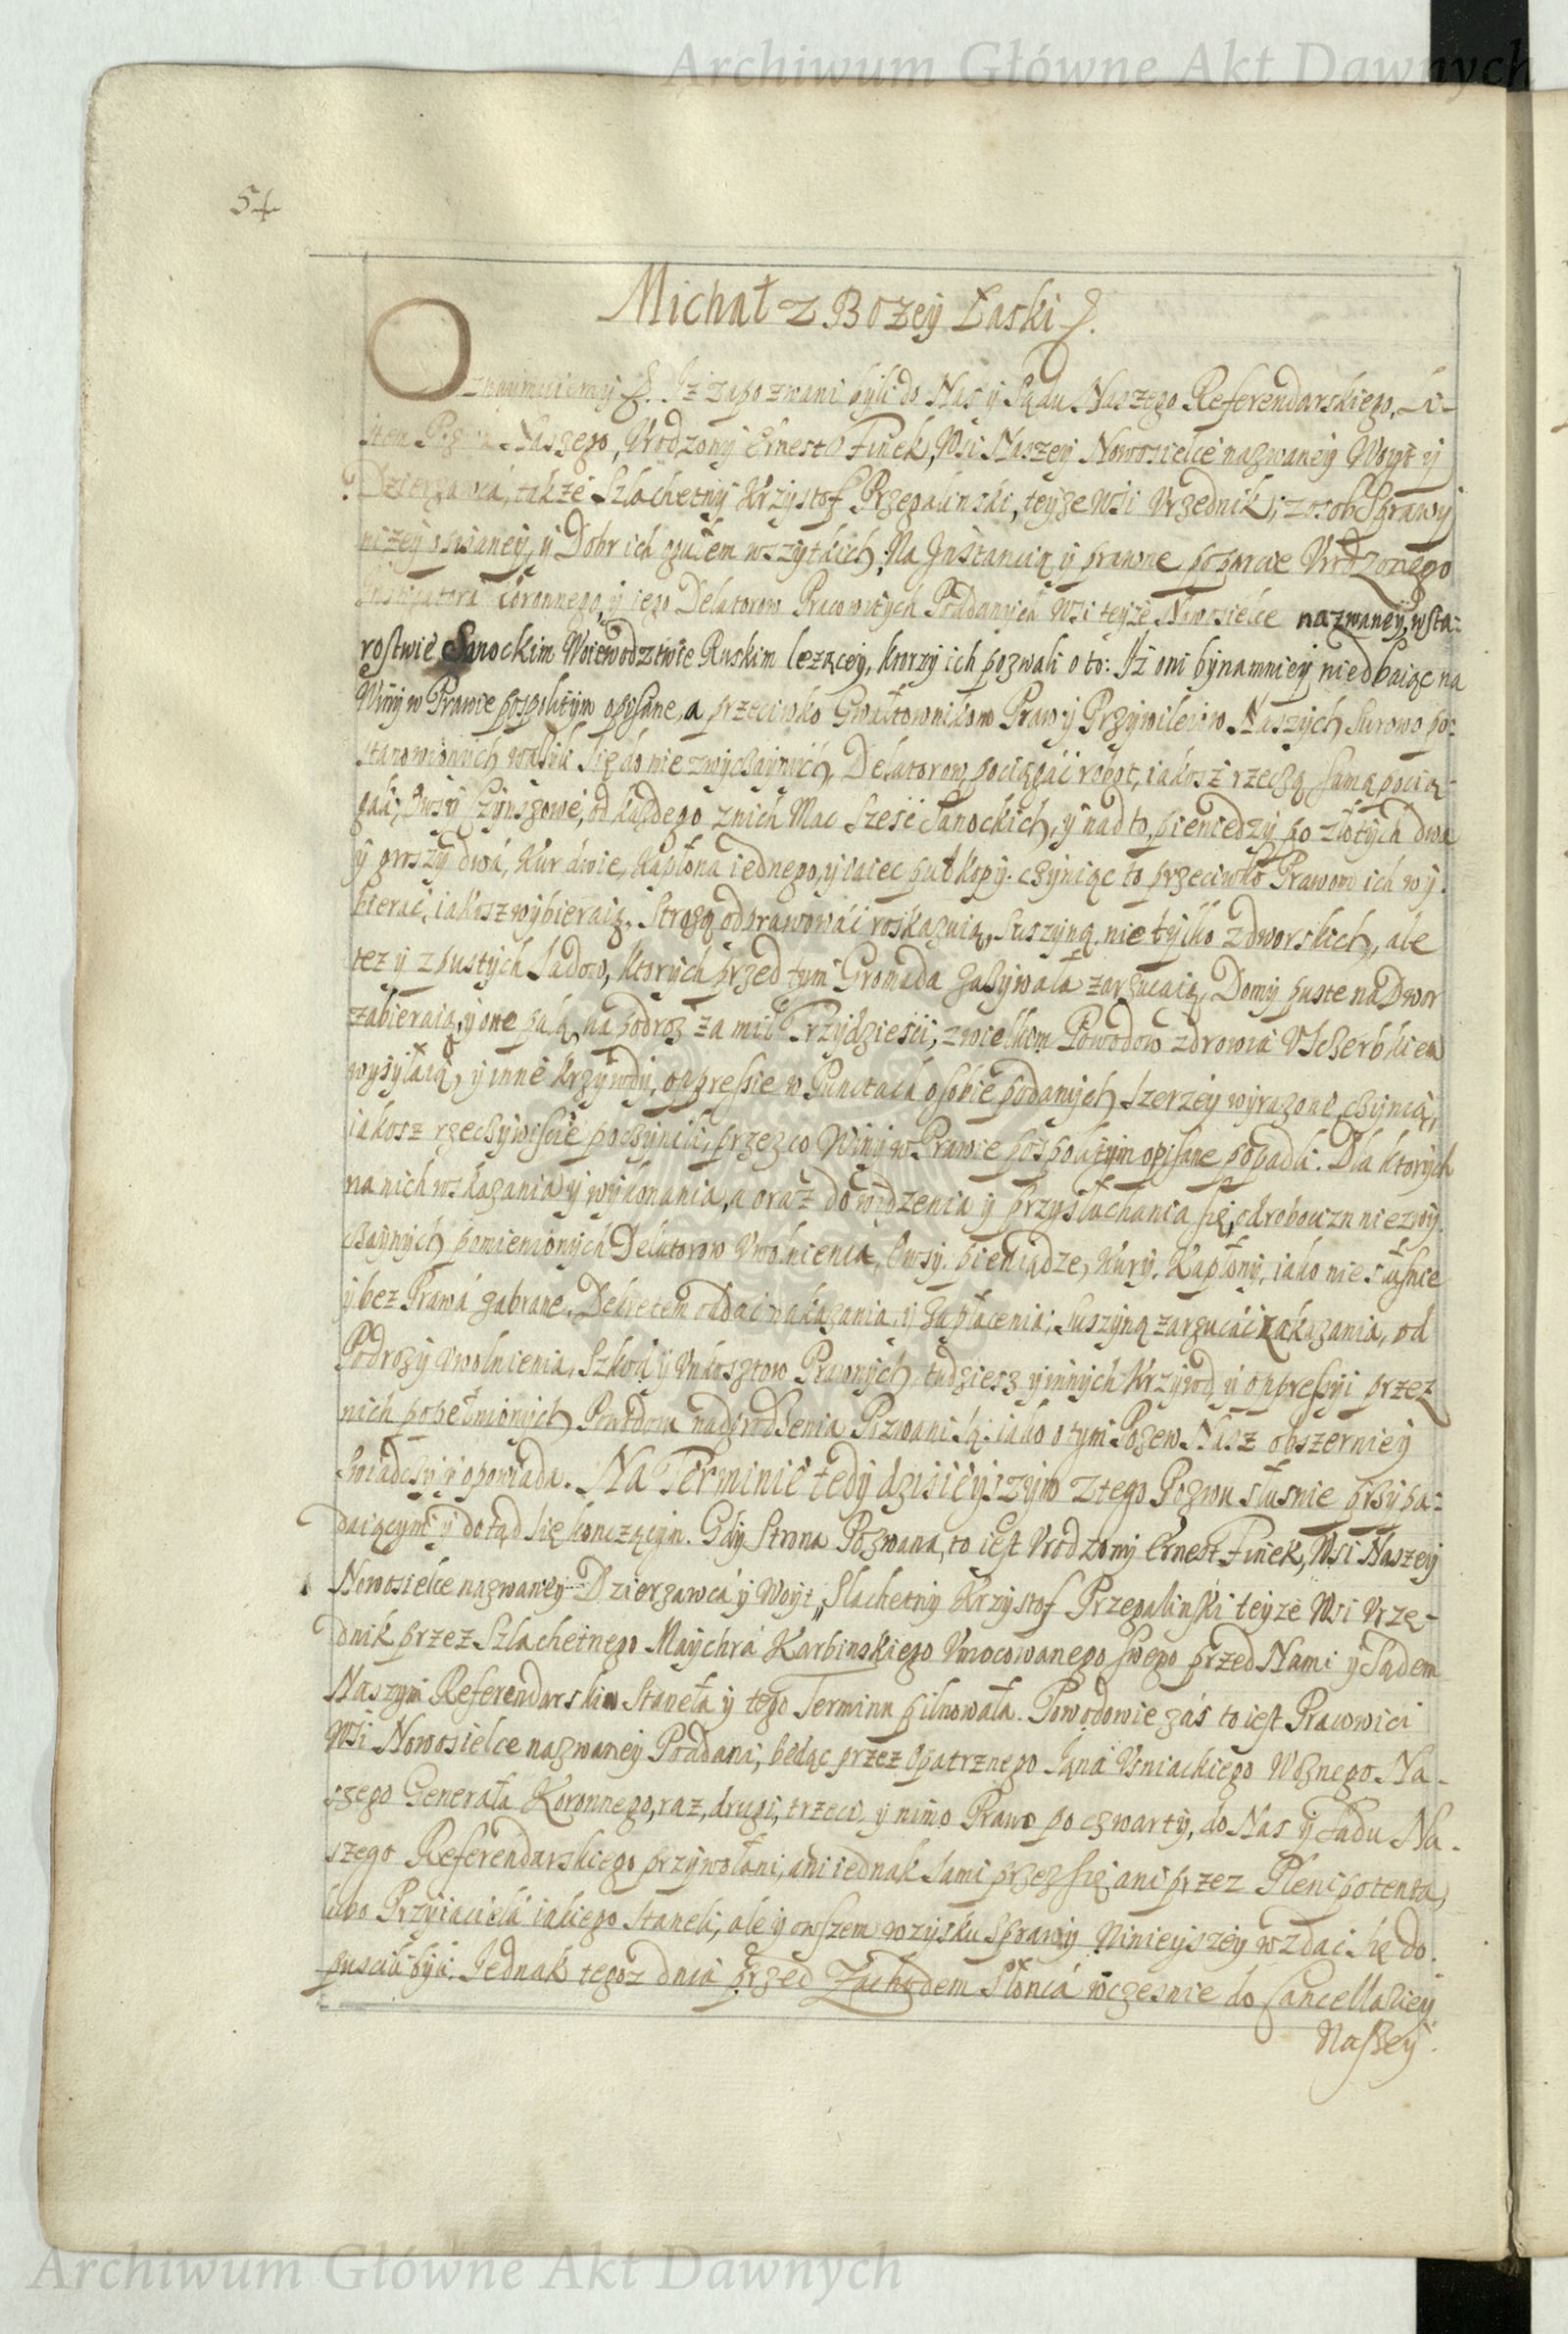 Archiwum Główne Akt Dawnych
54
Michał z Bozey Łaski &.
Oznaymuiemy &. Iż zapozwani byli do Nas y Sądu Naszego Referendarskiego, Li-
stem Naszego, Vrodzony Ernest Finek, Wsi Naszey Nowosielce nazwaney Woyt y
Dzierzawca, także Szlachetny Krzysztof Przegalinski, teyze Wsi Vrzednik, z osob Sprawy
nizey opisaney, y Dobr ich ogułem wszytkich, Na Instancią y prawne poparcie Vrodzonego
Instigatora Coronnego, y iego Delatorow Pracowitych Poddanych Wsi teyże Nowosielce nazwaney, w sta-
rostwie Sanockim Woiewodztwie Ruskim lezącey, ktorzy ich pozwali o to: Iż oni bynamniey niedbaiąc na
Winy w Prawie pospolitym opisane, a przeciwko Gwałtownikom Praw y Przywileiow Naszych surowo po-
stanowionych ważyli się do niezwyczaynych, Delatorow pociągać robot, iakosz rzeczą samą pocią-
gali; Owsy Czynszowe, od każdego z nich Mac Szesć Sanockich, y nad to, pieniedzy po złotych dwa
y groszy dwa, Kur dwie, Kapłona iednego, y iaiec puł kopy. czyniąc to przeciwko Prawom ich wy-
bierać, iakosz wybieraią. Strozą odprawować roskazuią, Suszyną nie tylko z dworskich, ale
tez y z pustych Sadow, ktorych przed tym Gromada zażywała zarzucaią, Domy puste na Dwor
zabieraią, y one palą, na podroz za mil Trzydziesci, z wielkim Powodow zdrowia Vszczerbkiem
wysyłaią, y inne krzywdy, oppressie w Punctach osobie podanych szerzey wyrazone czynią,
iakosz rzeczywiscie poczynili, przez co Winy w Prawie pospolitym opisane popadli. Dla ktorych
na nich wskazania y wykonania, a oraz do widzenia y przysłuchania się, od robocizn niezwy-
czaynych pomienionych Delatorow Vwolnienia, Owsy, pieniądze, Kury, Kapłony, iako niesłusnie
y bez Prawa zabrane, Dekretem oddać nakazania, y zapłacenia; Suszyną zarzucać zakazania, od
Podrozy Vwolnienia, Szkod y Vnkosztow Prawnych, tudziesz y innych Krzywd y oppressyi przez
nich popełnionych Powodom nadgrodzenia Pozwani są: iako o tym Pozew Nasz obszerniey
swiadczy y opowiada. Na Terminie tedy dzisieyszym z tego Pozwu słusnie przypa-
daiącym y dotąd się konczącym. Gdy Strona Pozwana, to iest Vrodzony Ernest Finek, Wsi Naszey
Nowosielce nazwaney Dzierzawca y Woyt, Slachetny Krzystof Przegalinski teyze Wsi Vrzę-
dnik przez Szlachetnego Maychra Karbinskiego Vmocowanego swego przed Nami y Sądem
Naszym Referendarskim Staneła y tego Terminu pilnowała. Powodowie zás to iest Pracowici
Wsi Nowosielce nazwaney Poddani, bedąc przez Opatrznego Jana Vsniackiego Woznego Na-
szego Generała Koronnego, raz, drugi, trzeci, y nimo Prawo po czwarty, do Nas y Sądu Na-
szego Referendarskiego przywołani, ani iednak sami przez się, ani przez Plenipotenta,
lubo Przyiaciela iakiego Staneli, ale y owszem w zysku sprawy Ninieyszey wzdac się do-
puscili byli. Jednak tegoz dnia przed Zachodem Słonca wczesnie do Cancellariey
Naszey
Archiwum Główne Akt Dawnych